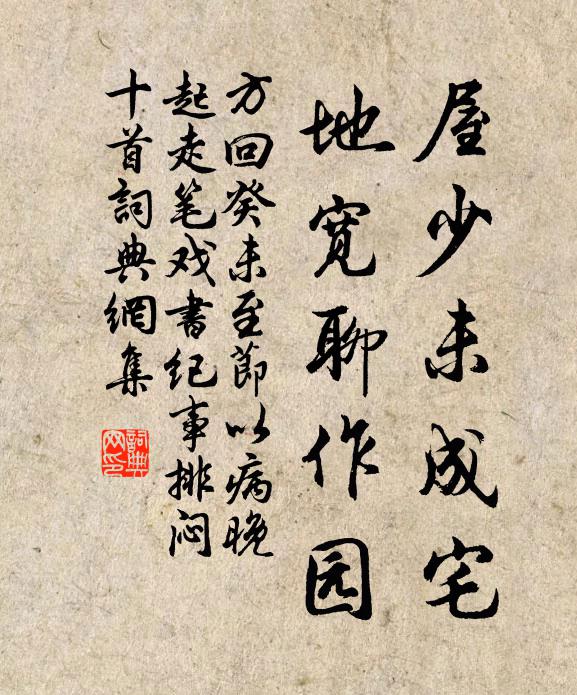 屋少未成宅
地宽聊作园
方回癸未至節以病晚
起走笔戏書纪事排闷
十首詞典網集
詞典
网印